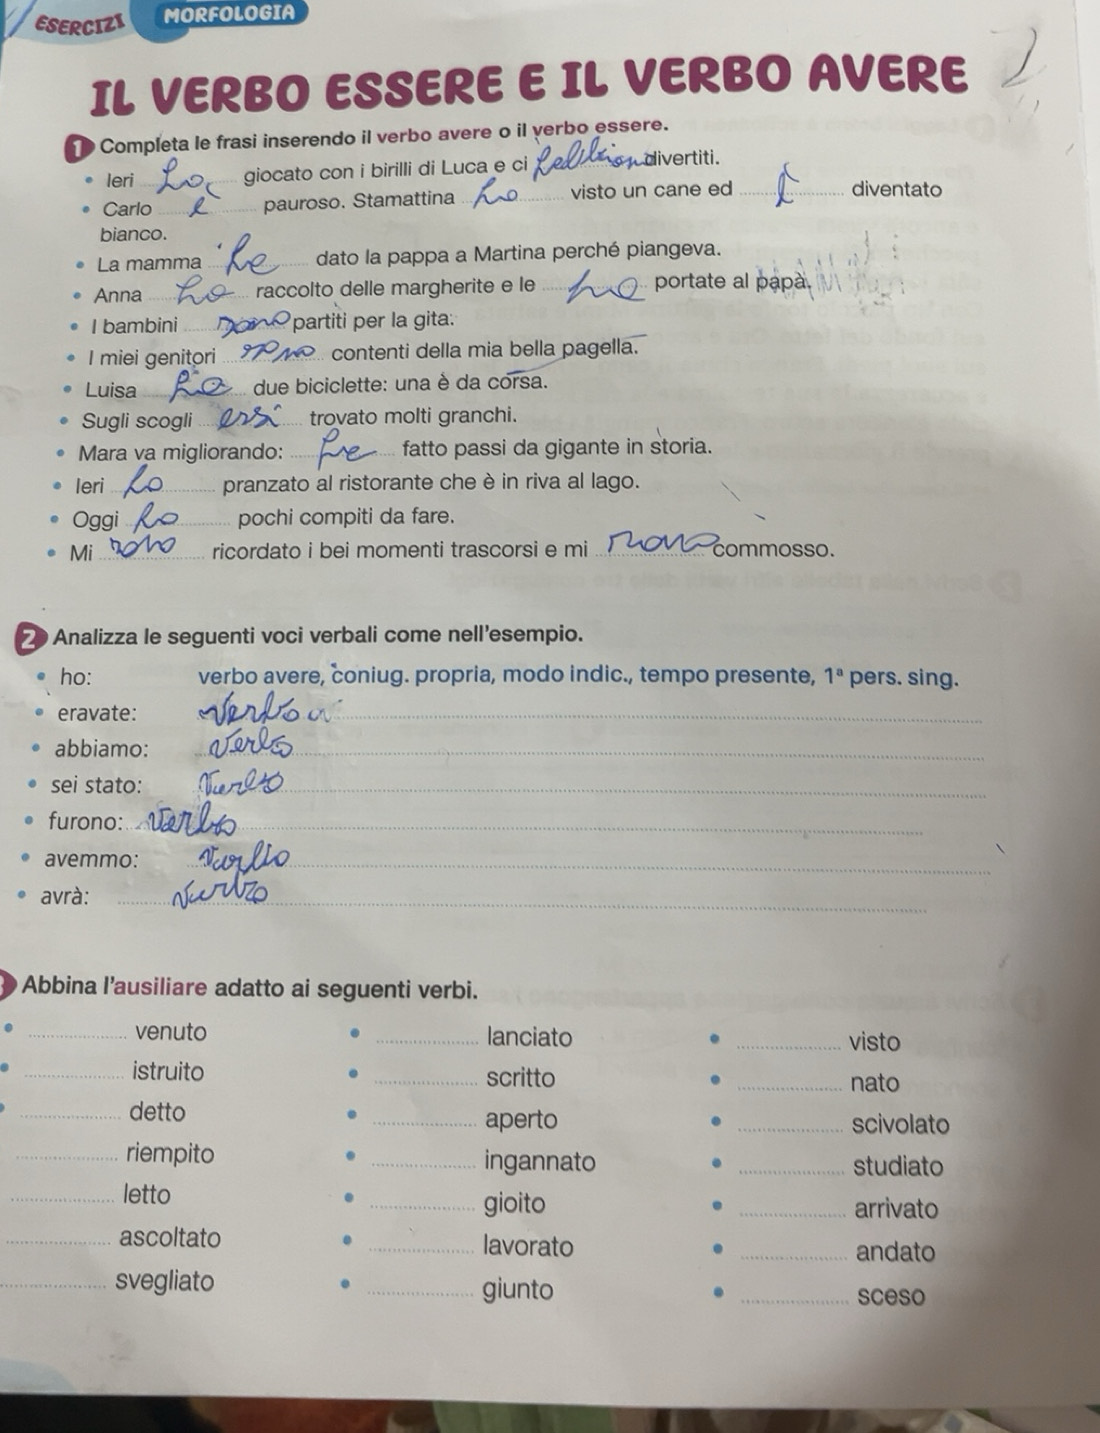 ESERCIZI MORFOLOGIA
IL VERBO ESSERE E IL VERBO AVERE
1 Completa le frasi inserendo il verbo avere o il verbo essere.
• Ieri ho giocato con i birilli di Luca e ci divertiti.
• Carlo è pauroso. Stamattina ho visto un cane ed è diventato
bianco.
• La mamma ha dato la pappa a Martina perché piangeva.
• Anna ha raccolto delle margherite e le ha portate al papà.
• I bambini sono partiti per la gita.
• I miei genitori sono contenti della mia bella pagella.
• Luisa ha due biciclette: una è da corsa.
• Sugli scogli essi trovato molti granchi.
• Mara va migliorando: ha fatto passi da gigante in storia.
• Ieri ho pranzato al ristorante che è in riva al lago.
• Oggi ho pochi compiti da fare.
• Mi sono ricordato i bei momenti trascorsi e mi sono commosso.
2 Analizza le seguenti voci verbali come nell'esempio.
• ho: verbo avere, coniug. propria, modo indic., tempo presente, 1ª pers. sing.
• eravate: verbo a
• abbiamo: verbo
• sei stato: verbo
• furono: verbo
• avemmo: verbo
• avrà: verbo
Abbina l'ausiliare adatto ai seguenti verbi.
• venuto • lanciato • visto
• istruito • scritto • nato
• detto • aperto • scivolato
riempito • ingannato • studiato
letto • gioito • arrivato
ascoltato • lavorato • andato
svegliato • giunto • sceso